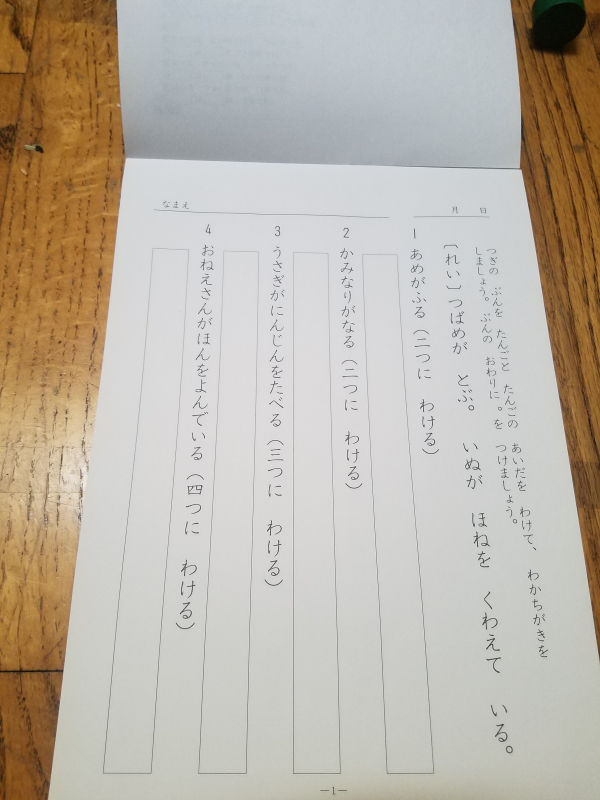 月 日
なまえ
つぎの ぶんを たんごと たんごの あいだを わけて、 わかちがきを
しましょう。 ぶんの おわりに 。を つけましょう。
〔れい〕つばめが とぶ。 いぬが ほねを くわえて いる。
1 あめがふる(二つに わける)
2 かみなりがなる(二つに わける)
3 うさぎがにんじんをたべる(三つに わける)
4 おねえさんがほんをよんでいる(四つに わける)
―1―